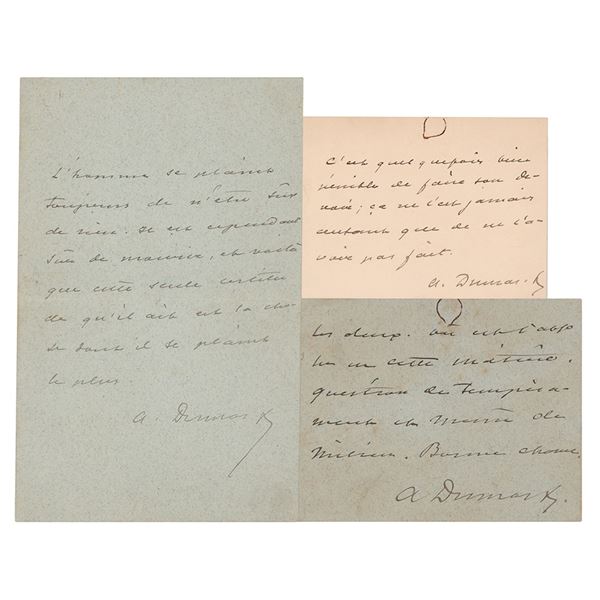 L'homme se plaint
toujours de n'être sûr
de rien. Il est cependant
sûr de mourir, et voilà
que cette seule certitu
de qu'il ait est la cho-
se dont il se plaint
le plus.
A. Dumas f
C'est quelquefois bien
pénible de faire son de-
voir; ça ne l'est jamais
autant que de ne l'a-
voir pas fait.
A. Dumas f
Les deux. Où est l'abso
lu en cette matière.
question de tempéra-
ment et même de
milieu. Bonne chance.
A Dumas f.